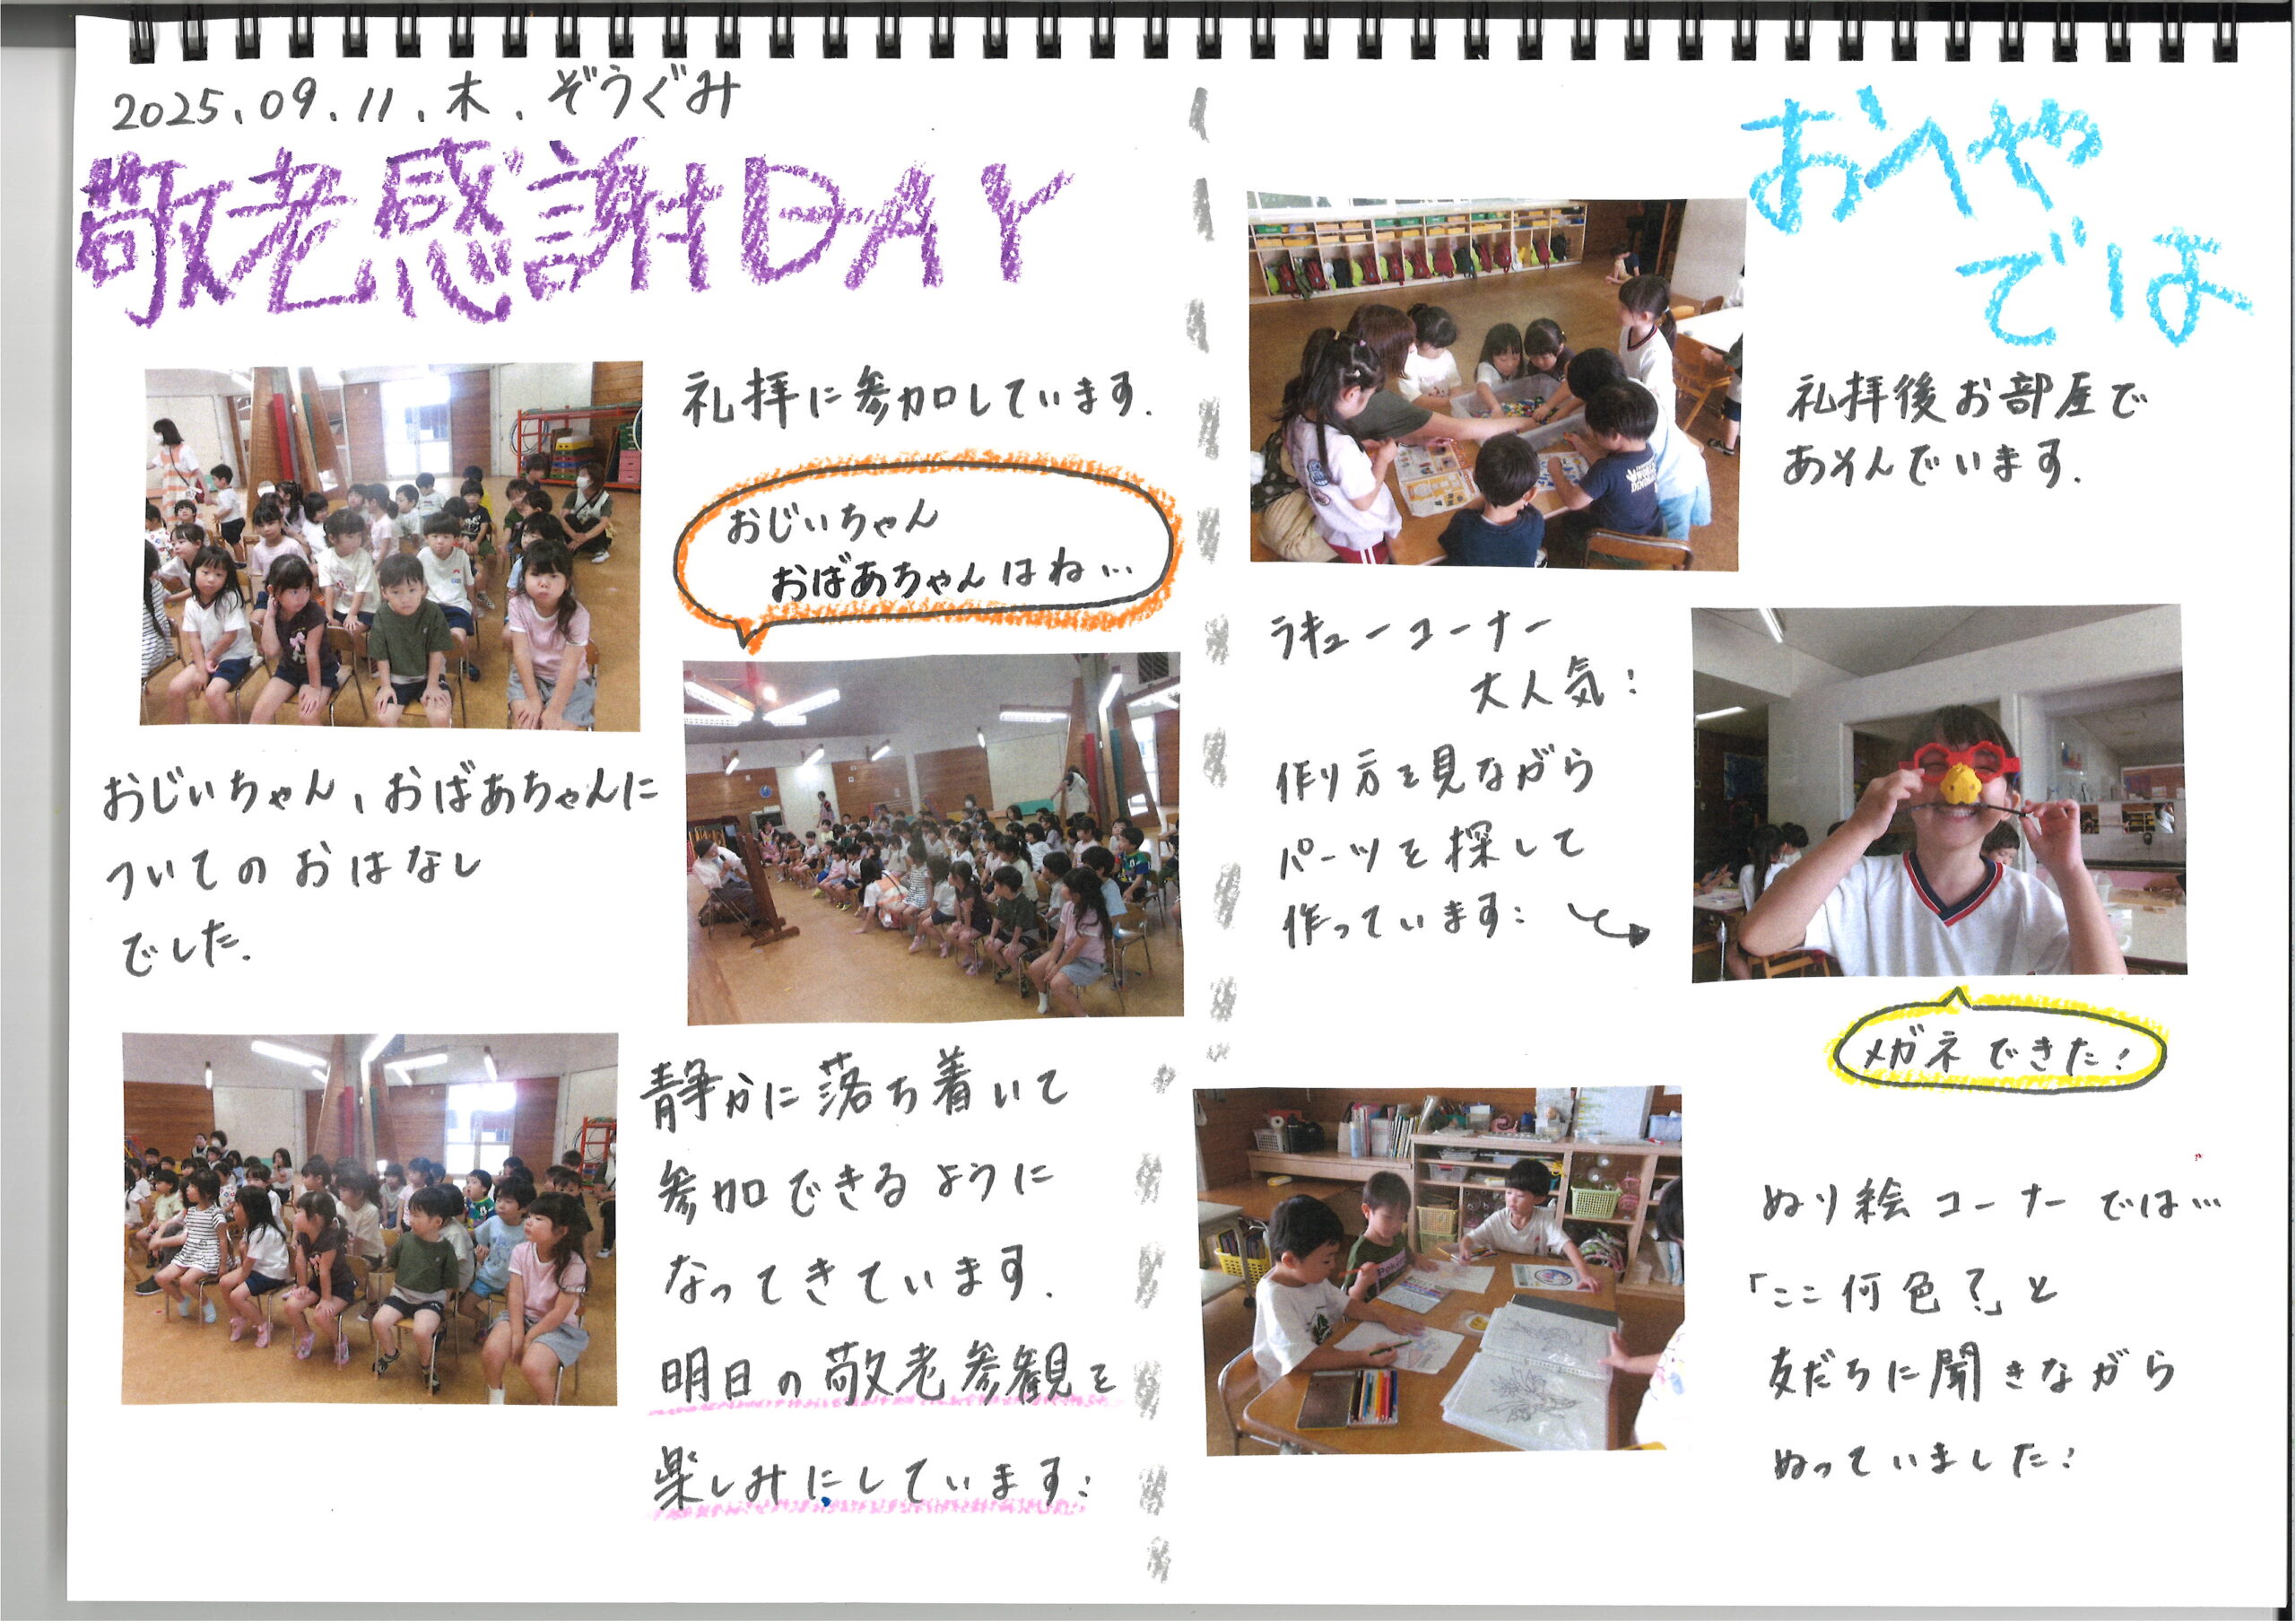 2025.09.11.木.ぞうぐみ
敬老感謝DAY
礼拝に参加しています.
おじいちゃん
おばあちゃんはね…
おじいちゃん、おばあちゃんに
ついてのおはなし
でした.
静かに落ち着いて
参加できるように
なってきています.
明日の敬老参観を
楽しみにしています!
おへや
では
礼拝後お部屋で
あそんでいます.
ラキューコーナー
大人気!
作り方を見ながら
パーツを探して
作っています!
メガネできた!
ぬり絵コーナーでは…
「ここ何色?」と
友だちに聞きながら
ぬっていました!